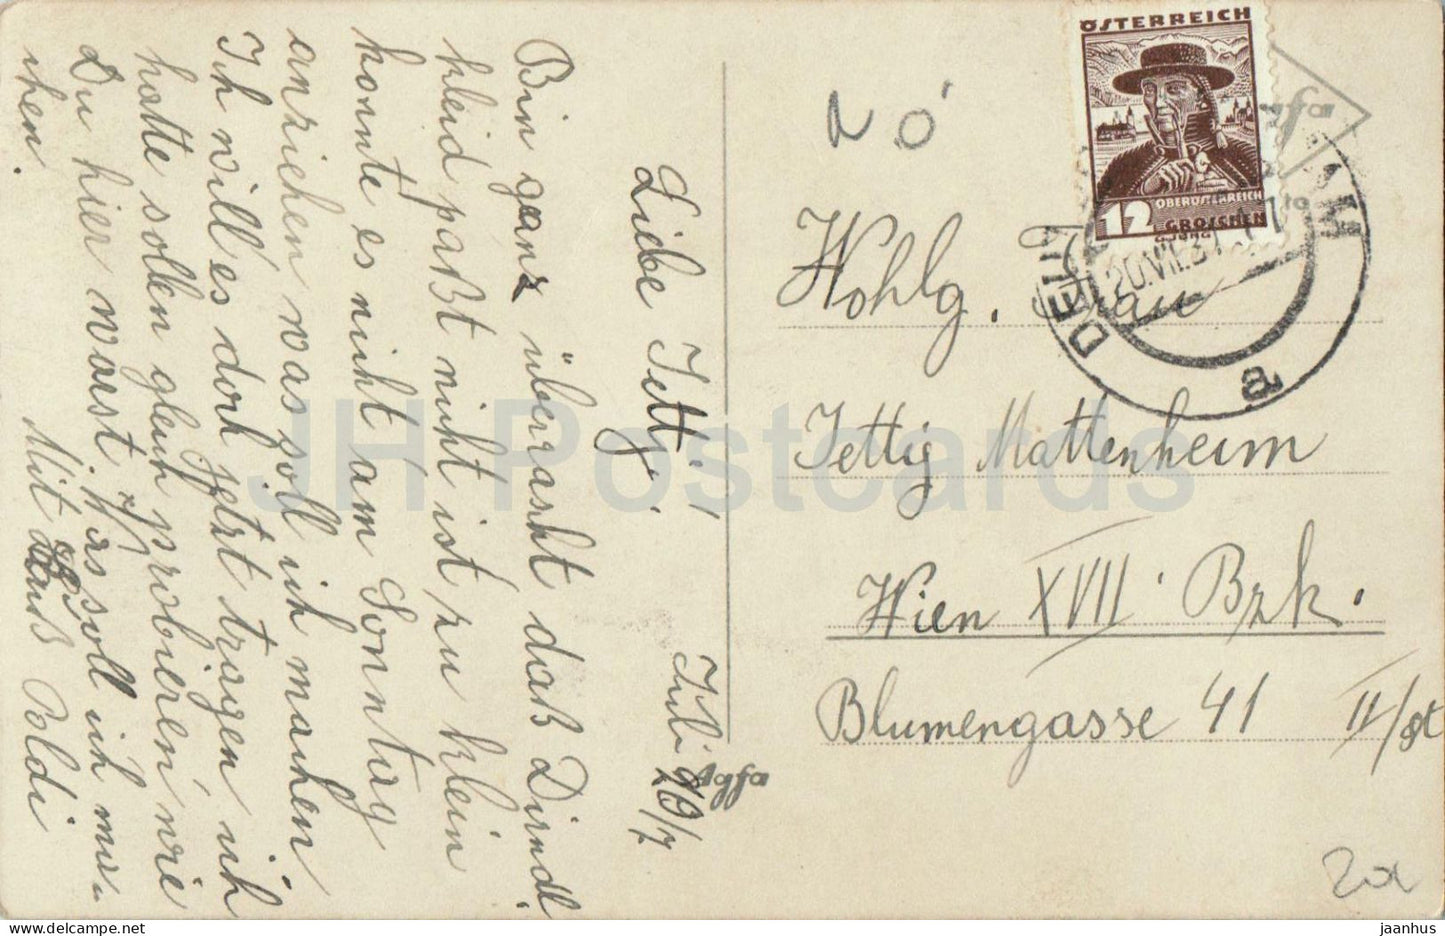 Juli 20/7
Liebe Jetty!
Bin ganz überrascht daß Dirndl
kleid paßt nicht ist zu klein
konnte es nicht am Sonntag
anziehen was soll ich machen
Ich will es doch jetzt tragen ich
hatte sollen gleich probieren wie
Du hier warst. Was soll ich mir
ihen.
Mit Poldi
NÖ
Wohlg. Frau
Jettig Mattenheim
Wien XVII. Bzk.
Blumengasse 41 II/St
ÖSTERREICH
12
OBERÖSTERREICH
GROSCHEN
G.JUNG
20.VII.3
a
Agfa
JH Postcards
jaanhus